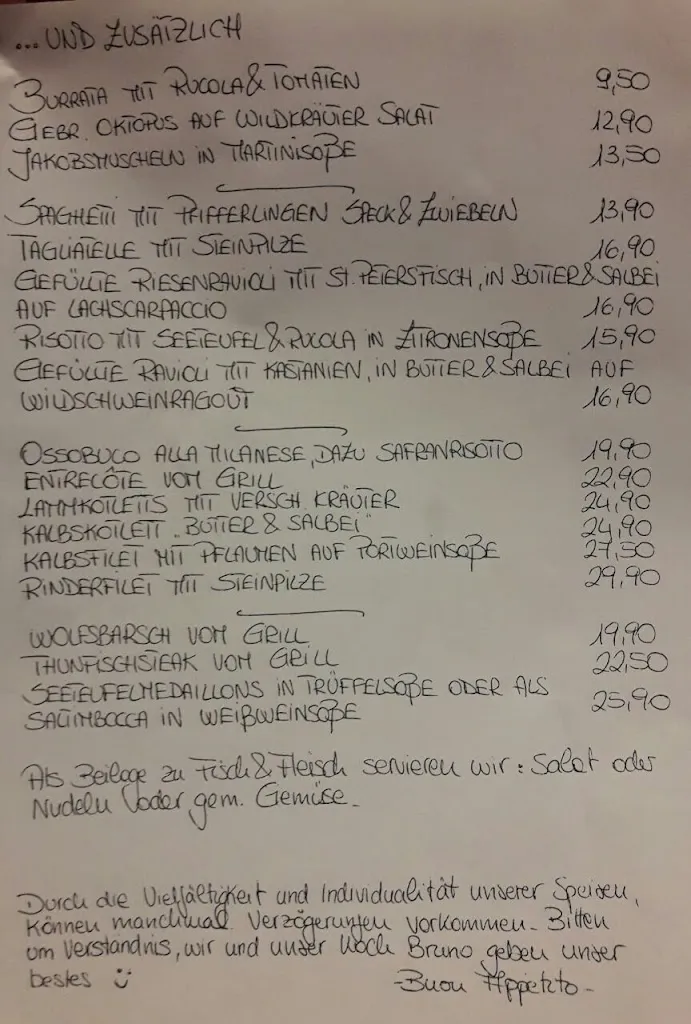 ... UND ZUSÄTZLICH
BURRATA MIT RUCOLA & TOMATEN 9,50
GEBR. OKTOPUS AUF WILDKRÄUTER SALAT 12,90
JAKOBSMUSCHELN IN MARTINISOßE 13,50
SPAGHETTI MIT PFIFFERLINGEN SPECK & ZWIEBELN 13,90
TAGLIATELLE MIT STEINPILZE 16,90
GEFÜLLTE RIESENRAVIOLI MIT ST. PETERSFISCH, IN BUTTER & SALBEI
AUF LACHSCARPACCIO 16,90
RISOTTO MIT SEETEUFEL & RUCOLA IN ZITRONENSOßE 15,90
GEFÜLLTE RAVIOLI MIT KASTANIEN, IN BUTTER & SALBEI AUF
WILDSCHWEINRAGOUT 16,90
OSSOBUCO ALLA MILANESE, DAZU SAFRANRISOTTO 19,90
ENTRECÔTE VOM GRILL 22,90
LAMMKOTLETTS MIT VERSCH. KRÄUTER 24,90
KALBSKOTLETT „BUTTER & SALBEI" 24,90
KALBSFILET MIT PFLAUMEN AUF PORTWEINSOßE 27,50
RINDERFILET MIT STEINPILZE 29,90
WOLFSBARSCH VOM GRILL 19,90
THUNFISCHSTEAK VOM GRILL 22,50
SEETEUFELMEDAILLONS IN TRÜFFELSOßE ODER ALS
SALTIMBOCCA IN WEIßWEINSOßE 25,90
Als Beilage zu Fisch & Fleisch servieren wir: Salat oder
Nudeln oder gem. Gemüse.
Durch die Vielfältigkeit und Individualität unserer Speisen,
können manchmal Verzögerungen vorkommen. Bitten
um Verständnis, wir und unser Koch Bruno geben unser
bestes
-Buon Appetito-